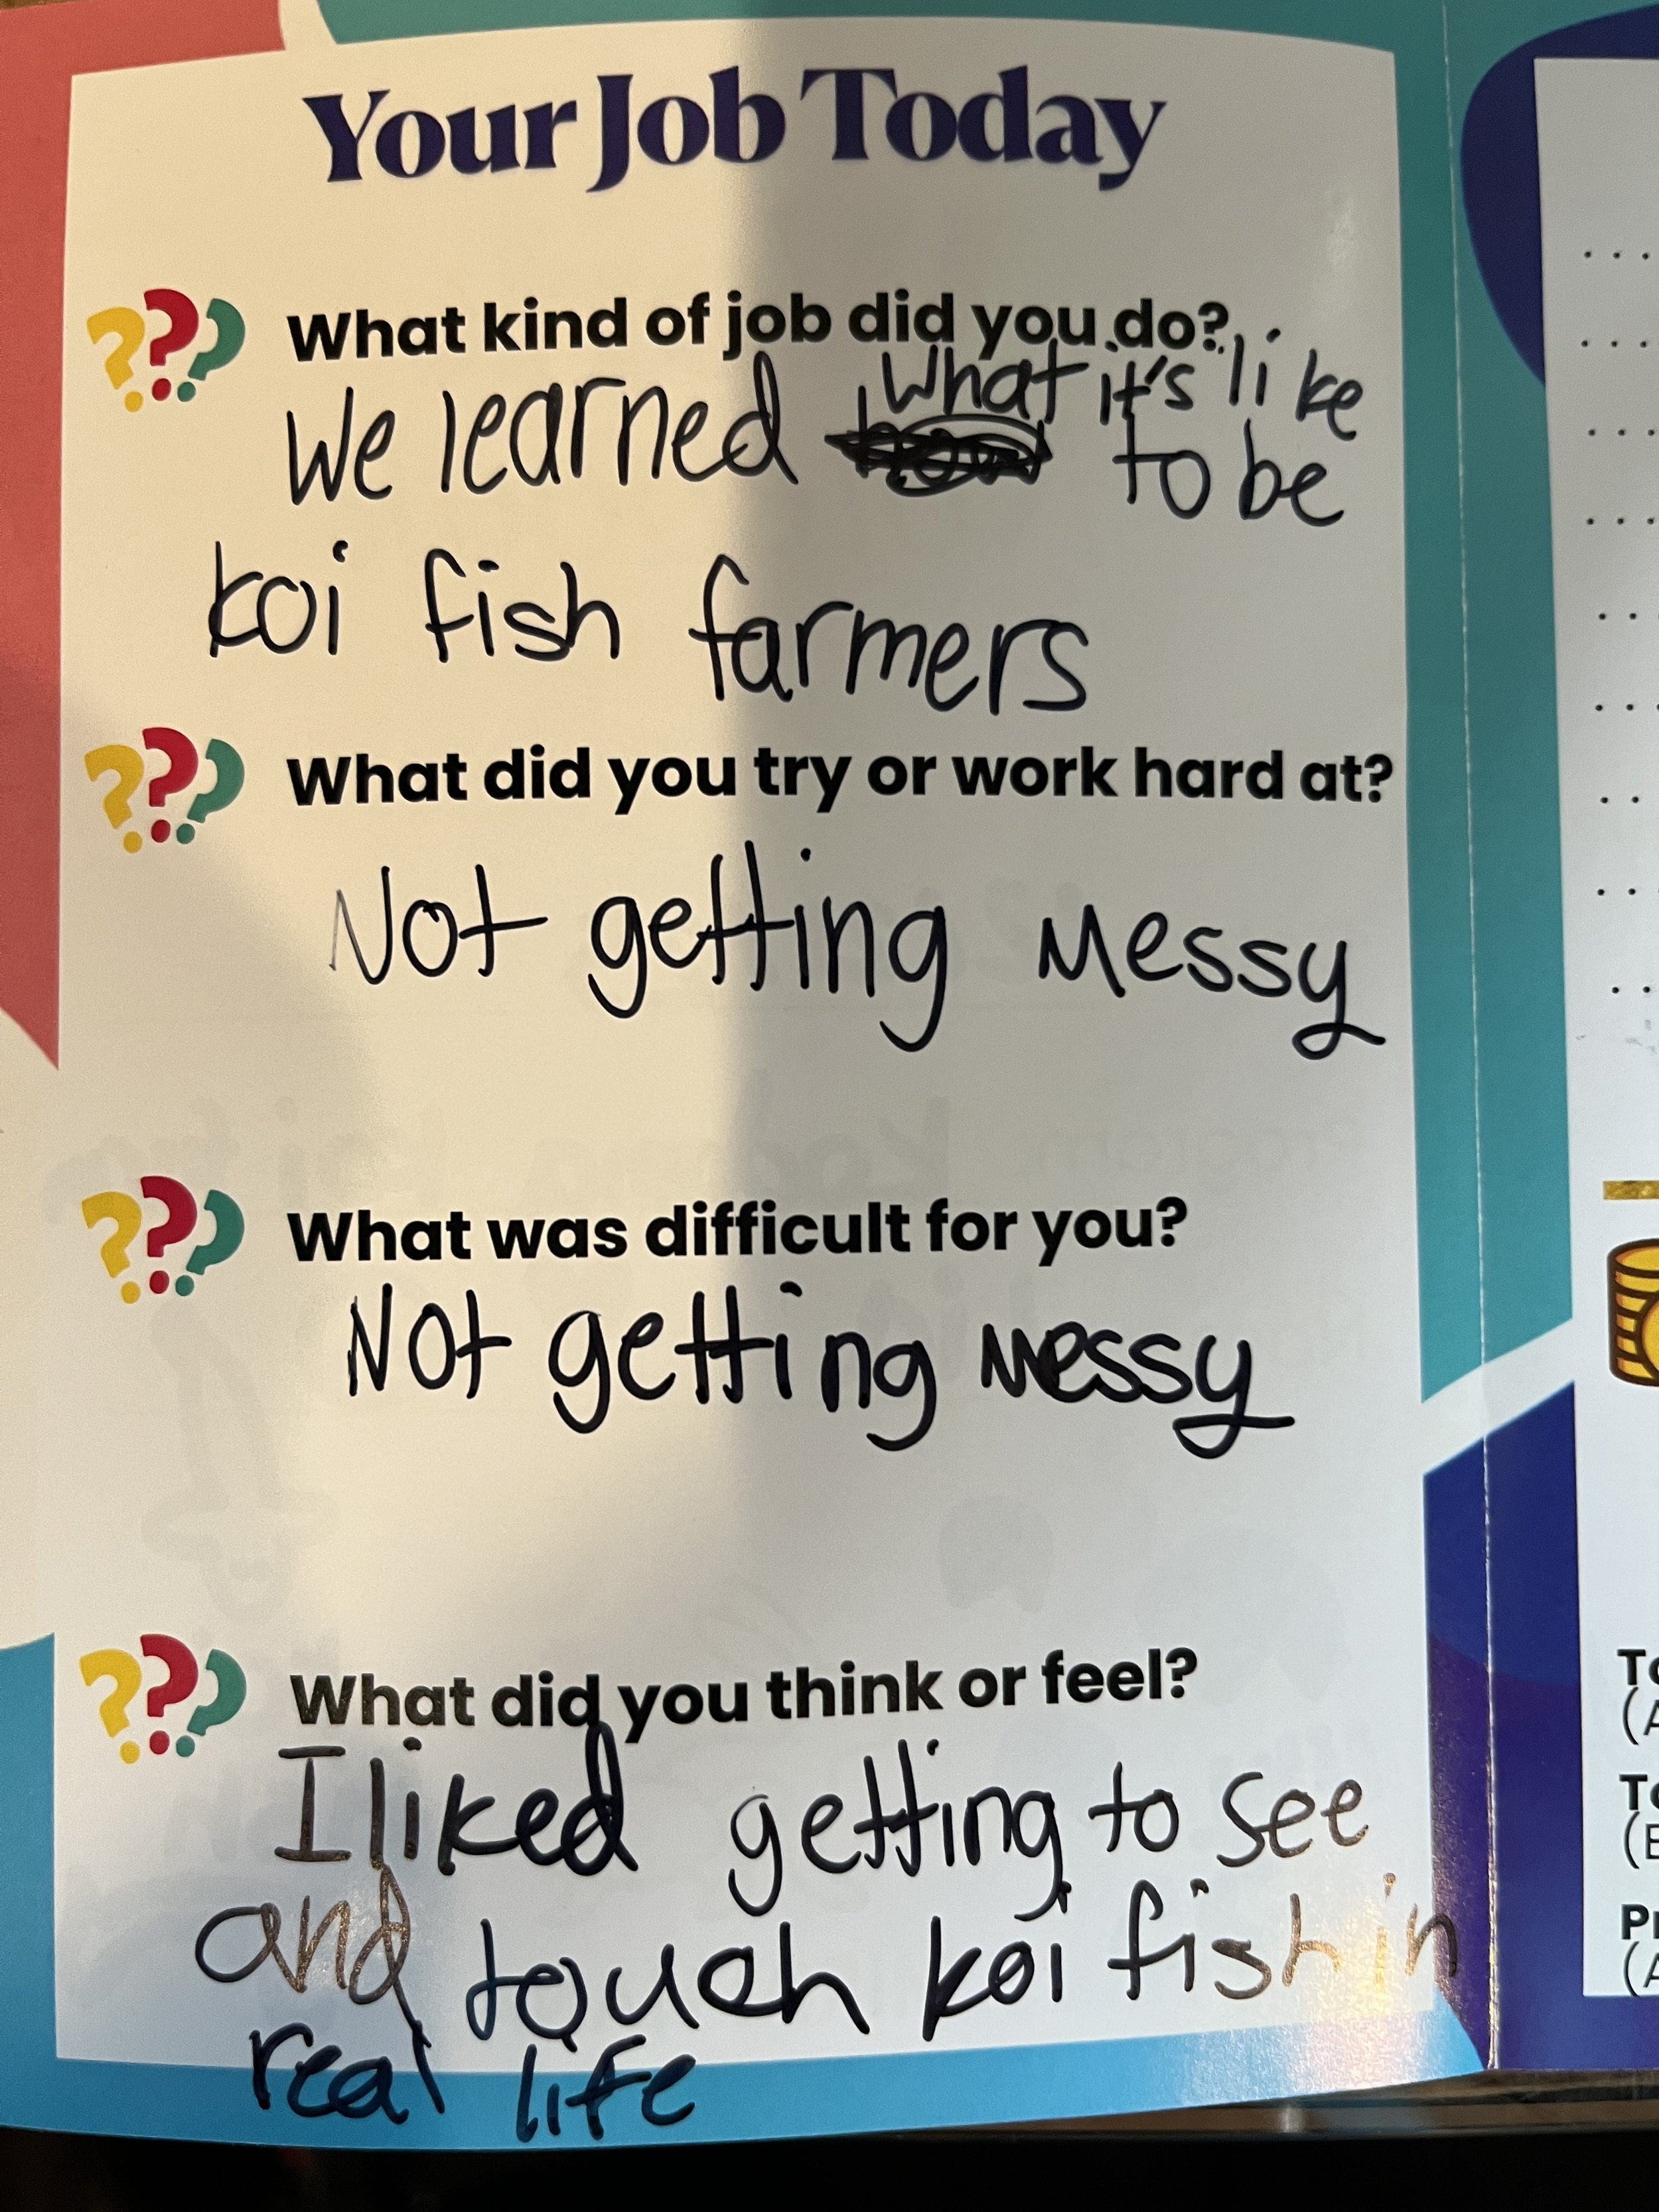 Your Job Today
??? What kind of job did you do?
We learned what it's like
to be
koi fish farmers
??? What did you try or work hard at?
Not getting Messy
??? What was difficult for you?
Not getting Messy
??? What did you think or feel?
I liked getting to see
and touch koi fish in
real life
To
(A
To
(E
Pr
(A